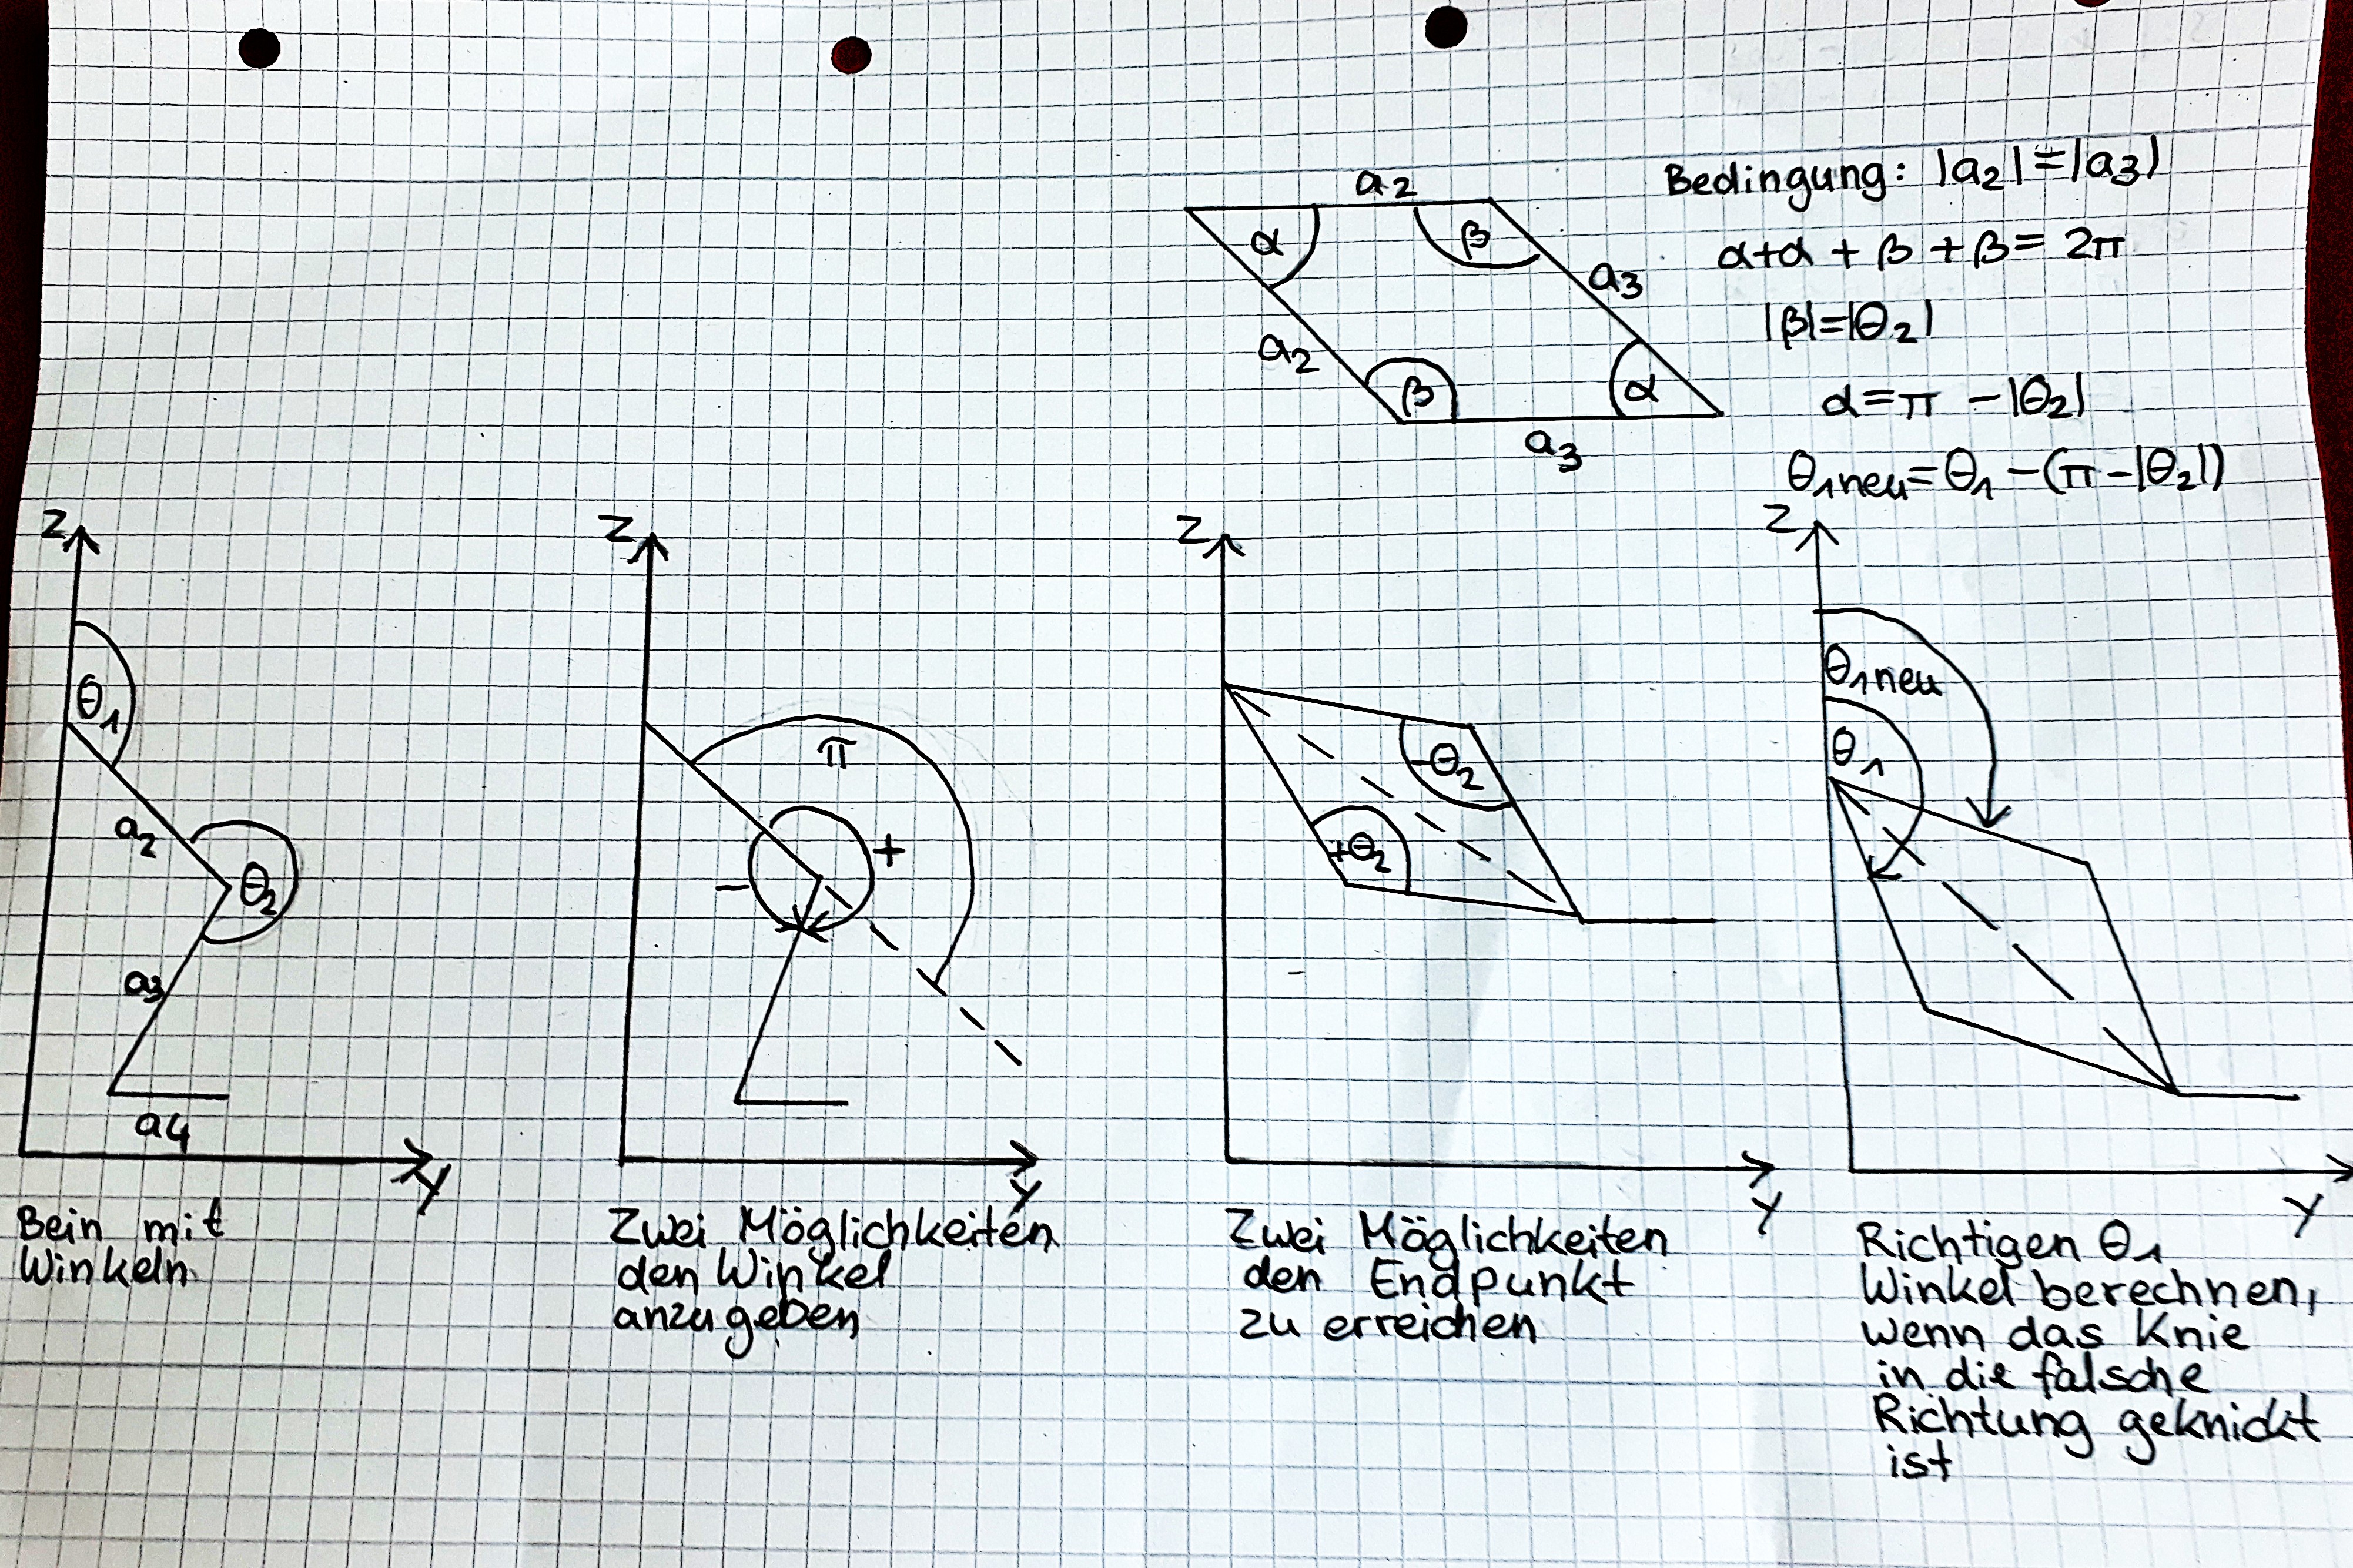 a2
Bedingung: |a2|=|a3|
α
β
a3
α+α + β + β = 2π
|β|=|θ2|
a2
β
α
α = π - |θ2|
a3
θ1neu = θ1 - (π - |θ2|)
z
θ1
a2
θ2
a3
a4
y
Bein mit
Winkeln
z
π
+
-
y
Zwei Möglichkeiten
den Winkel
anzugeben
z
-θ2
+θ2
y
Zwei Möglichkeiten
den Endpunkt
zu erreichen
z
θ1neu
θ1
y
Richtigen θ1
Winkel berechnen,
wenn das Knie
in die falsche
Richtung geknickt
ist